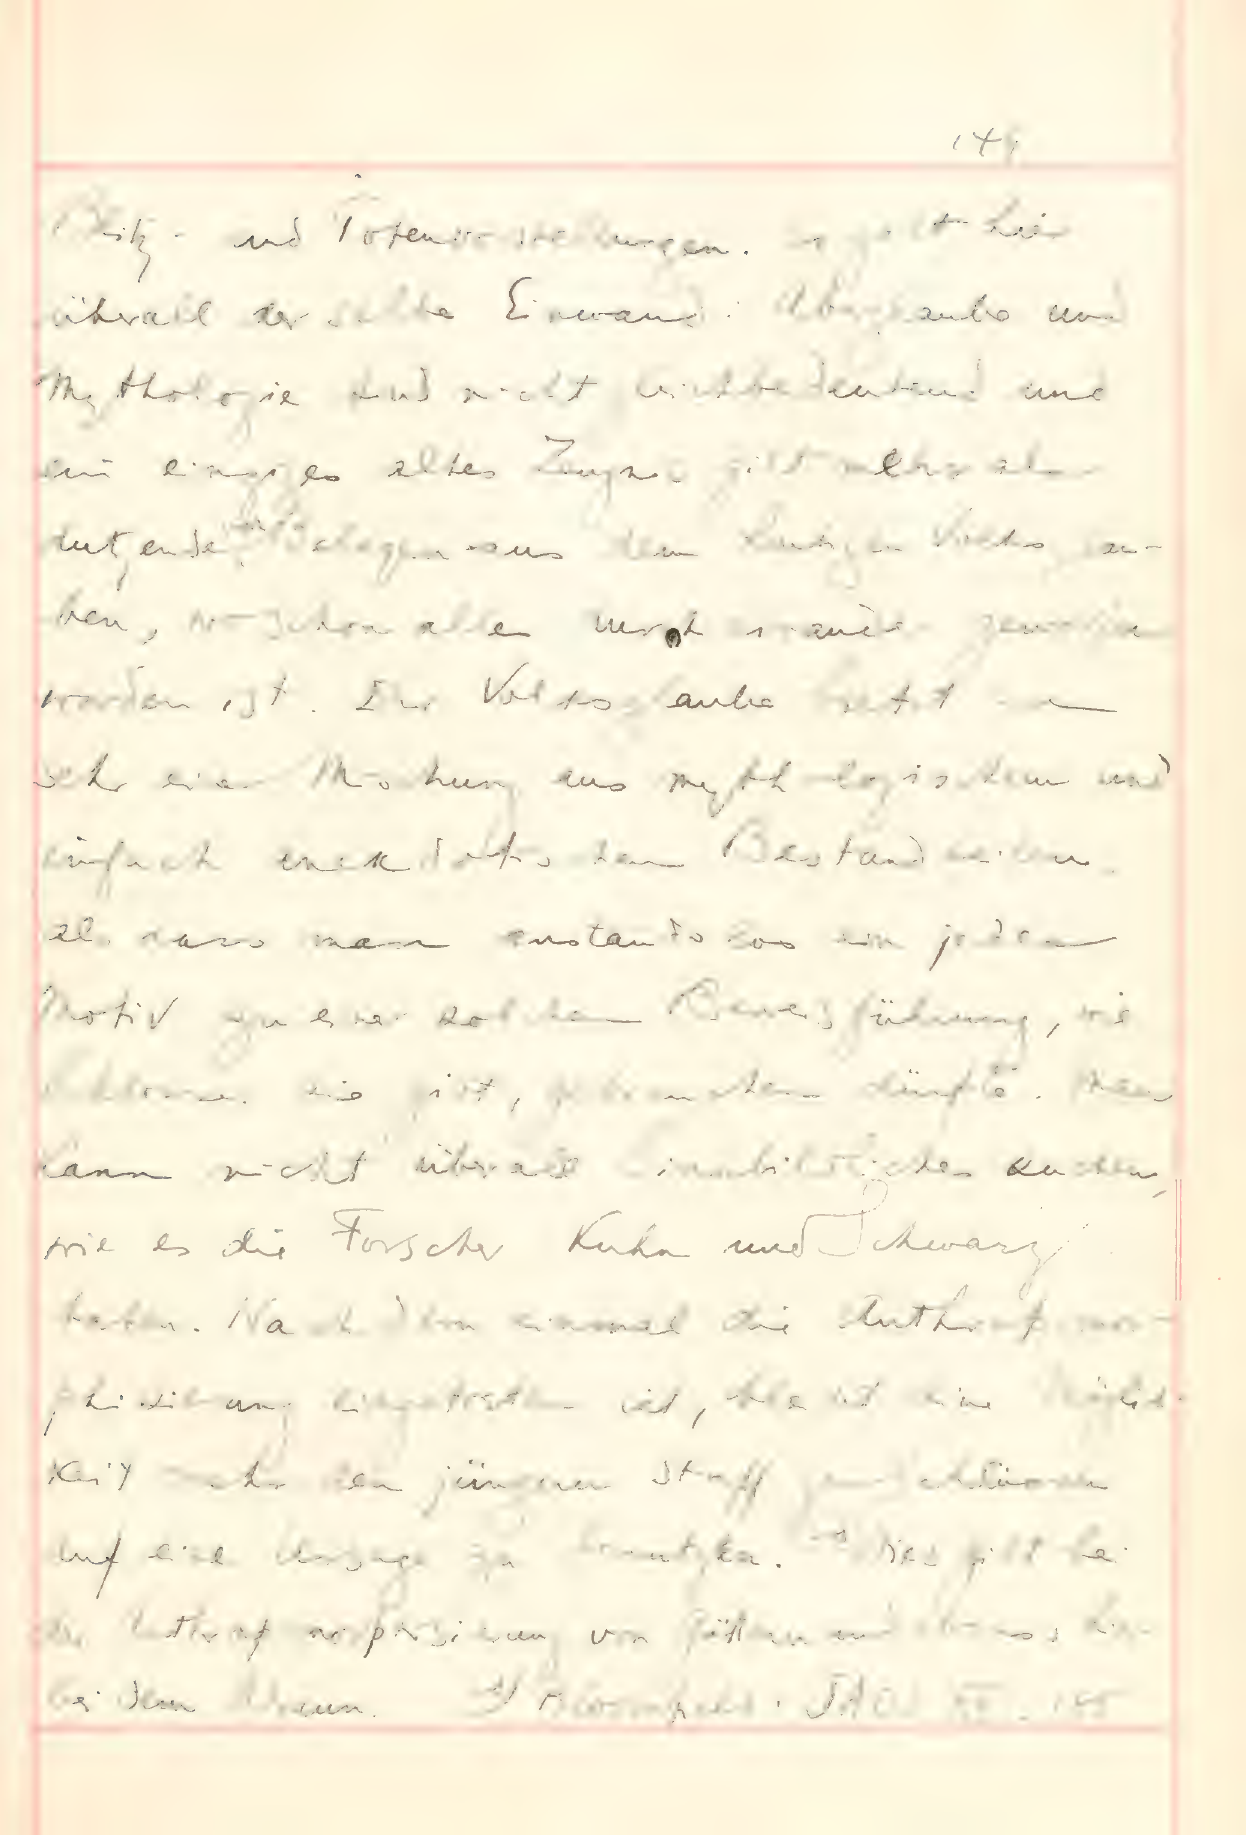 149
Blitz- und Totenvorstellungen. Es gilt hier
überall derselbe Einwand: Aberglaube und
Mythologie sind nicht gleichbedeutend und
ein einziges altes Zeugnis gilt mehr als
dutzende Belegen aus dem heutigen Volksglau-
ben, wo schon alles durcheinander geworfen
worden ist. Der Volksglaube besteht
sehr einer Mischung aus mythologischem und
einfach anekdotischem Bestandteilen
als dass man anstandslos ein jedes
Motiv zu einer solchen Beweisführung, wie
sie gibt, gebrauchen dürfte. Man
kann nicht überall sinnbildliches suchen,
wie es die Forscher Kuhn und Schwarz
haben. Nachdem einmal die Anthropomor-
phisierung eingetreten ist, bleibt eine Möglich-
keit mehr den jüngeren Stoff
auf eine Ursage zu. Dies gilt bei
der Anthropomorphisierung von Göttern und ebenso
bei dem. 1) Bloomfield. JAOS XV. 165